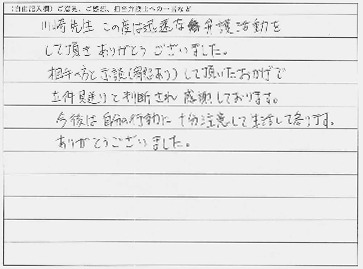 (自由記入欄)ご意見、ご感想、担当弁護士への一言など
川崎先生 この度は迅速な弁護活動を
して頂きありがとうございました。
相手の方と示談(宥恕あり)して頂いたおかげで
立件見送りと判断され感謝しております。
今後は自分の行動に十分注意して生活して参ります。
ありがとうございました。